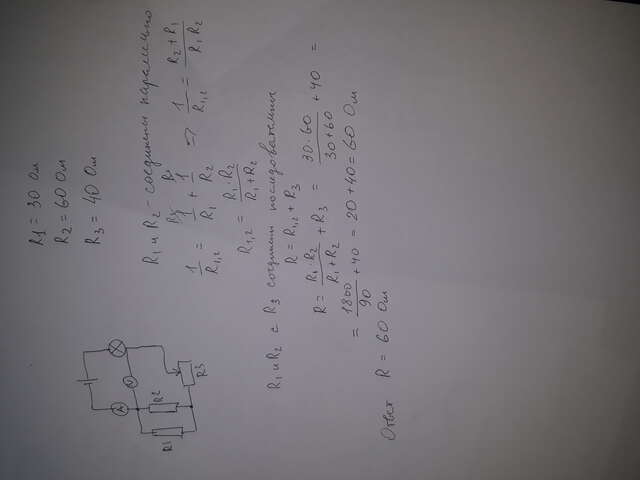 R1 = 30 Ом
R2 = 60 Ом
R3 = 40 Ом
R1 и R2 - соединены параллельно
1/R1,2 = 1/R1 + 1/R2 => 1/R1,2 = R2+R1/R1R2
R1,2 = R1·R2/R1+R2
R1 и R2 с R3 соединены последовательно
R = R1,2 + R3
R = R1·R2/R1+R2 + R3 = 30·60/30+60 + 40 =
= 1800/90 + 40 = 20 + 40 = 60 Ом
Ответ R = 60 Ом
A
R1
R2
R3